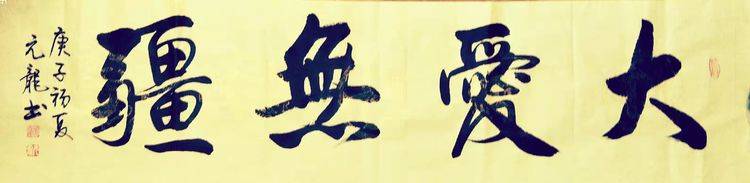 大愛無疆
庚子初夏
元龍书